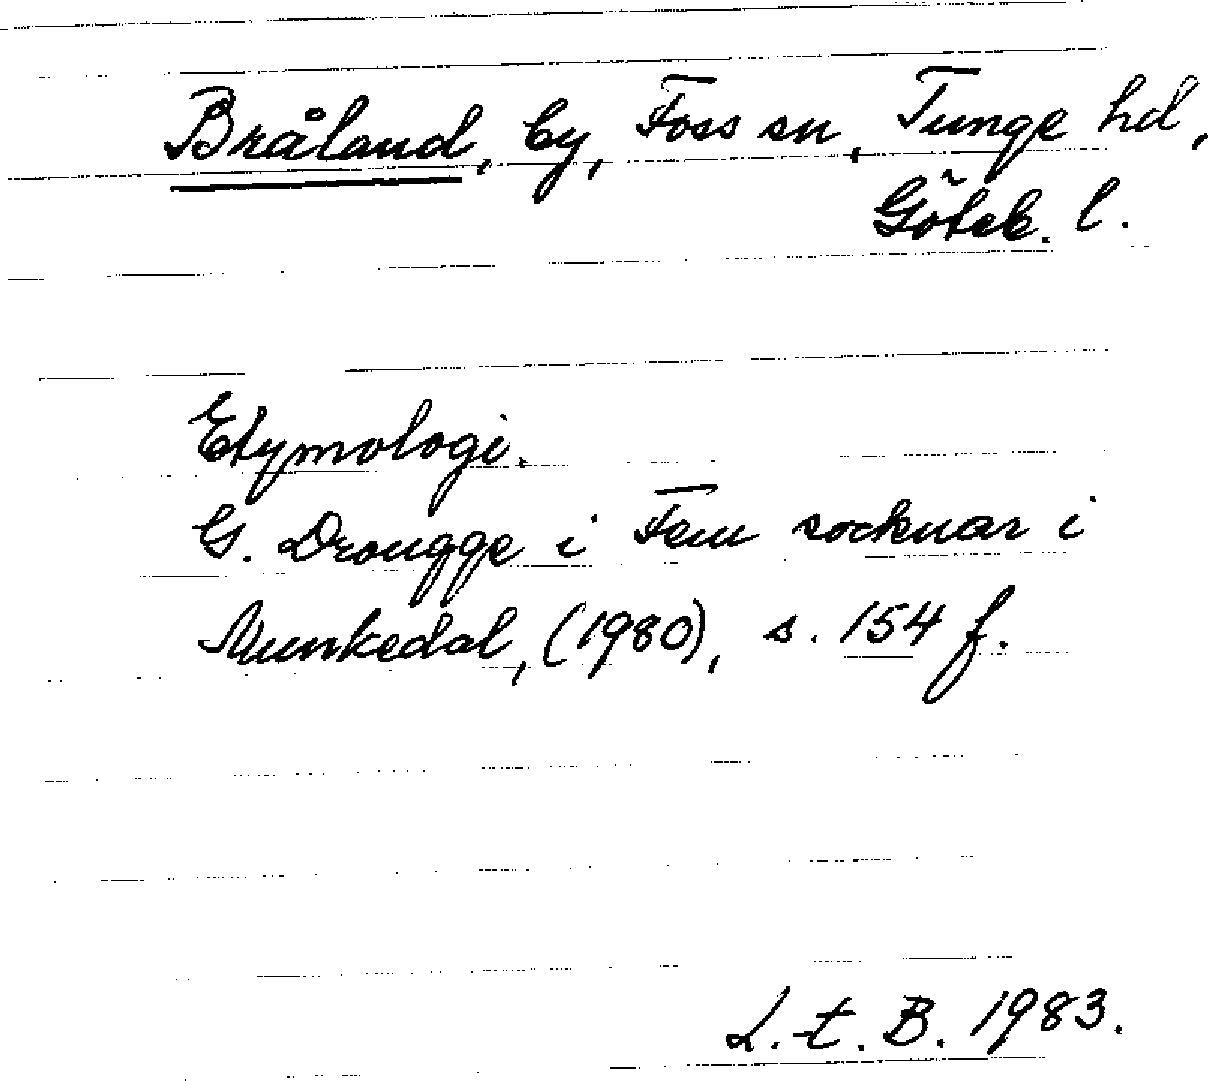 Bråland, by, Foss sn, Tunge hd,
Göteb. l.
Etymologi.
G. Drougge i Fem socknar i
Munkedal, (1980), s. 154 f.
L. t. B. 1983.